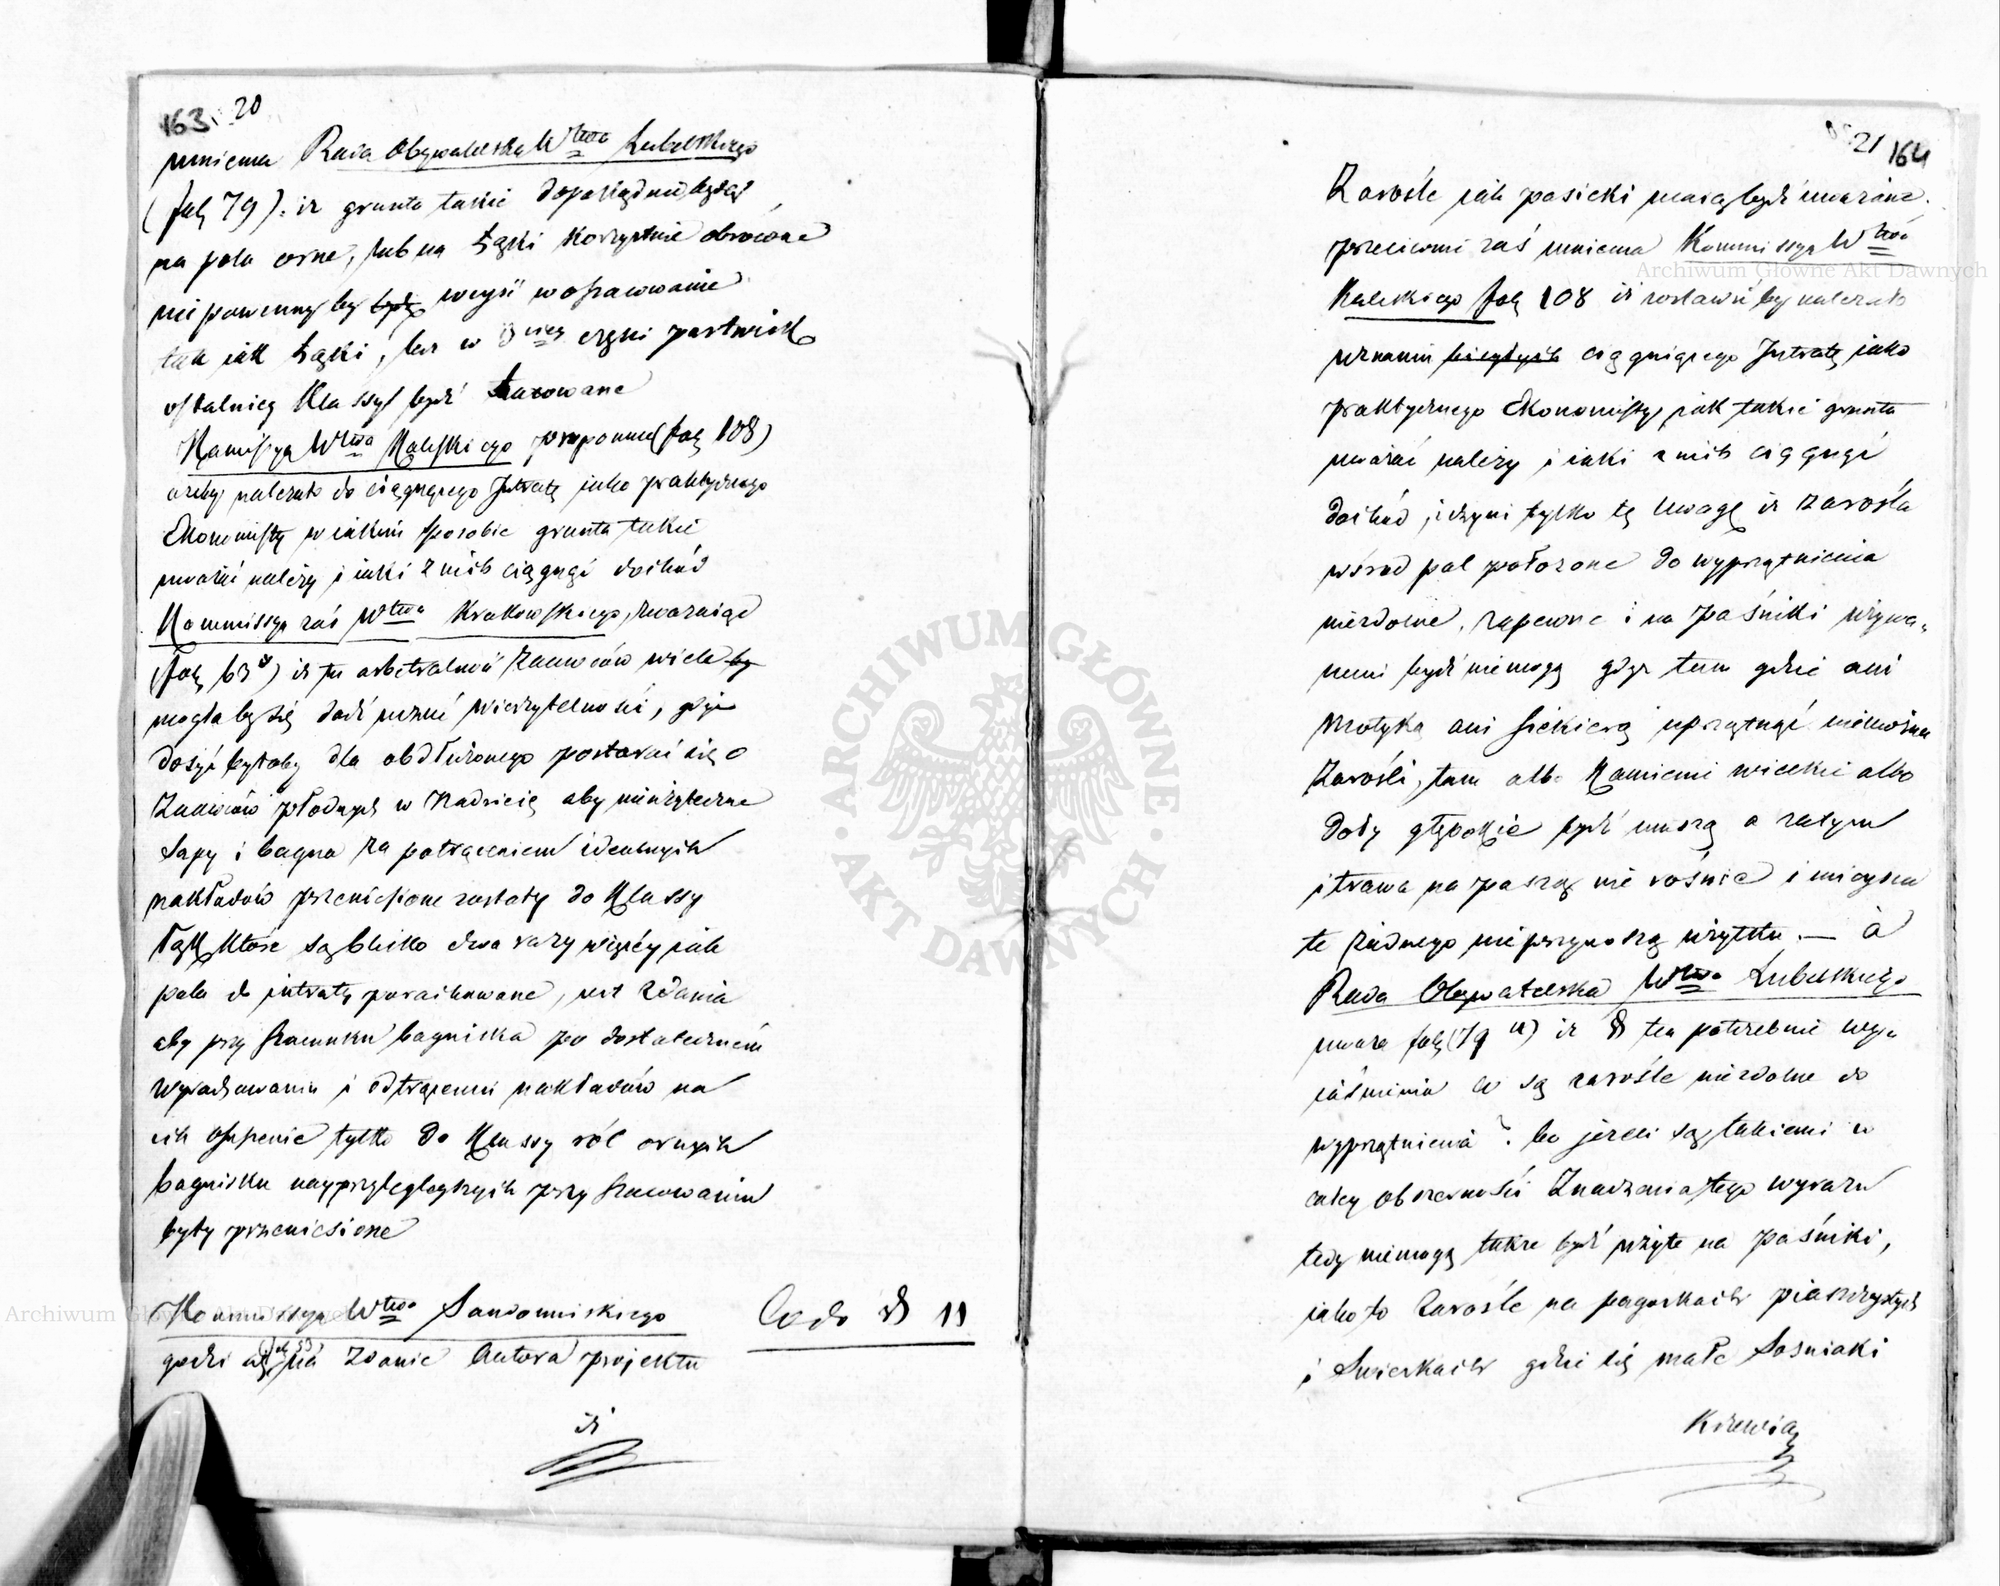 163. 20
mniema Rada Obywatelska Wtwa Lubelskiego
(fol. 79). iz grunta takie dopokąd nie będą
na pola orne, lub na łąki korzystnie obrócone
nie powinny by wejść w oszacowanie
tak jak łąki, lecz w części pastwisk
ostatniey Klassy bydź taxowane
Kommissya Wtwa Kaliskiego proponuie (fol. 108)
ażeby należało do ciągnącego Jntratę jako praktycznego
Ekonomistę w iakim sposobie grunta takie
uważać należy i iaki z nich ciągnąć dochód
Kommissya zaś Wtwa Krakowskiego, zważaiąc
(fol. 63) iż tu arbitralność Znawców wiele by
mogła by się dadź uczuć wierzytelności, gdyż
dosyć byłoby dla obdłużonego postarać się o
Znawców płodnych w Nadzieię aby nieużyteczne
Sapy i bagna za potrąceniem idealnych
nakładów przeniesione zostały do Klassy
łąk, które są blisko dwa razy więcéy jak
pola do jntraty porachowane, jest Zdania
aby przy Szacunku bagniska po dostatecznem
wyrachowaniu i odtrąceniu nakładów na
ich osuszenie tylko do Klassy ról ornych
bagnisku nayprzylegleyszych przy szacowaniu
były przeniesione
Kommissya Wtwa Sandomirskiego Co do § 11
godzi się (fol. 53) na Zdanie Autora projektu
iż
21 164
Zarośle jak pasieki maią bydź uważane.
przeciwnie zaś mniema Kommissya Wtwa
Kaliskiego fol. 108 iż zostawić by należało
uznaniu ciągnącego Jntratę jako
praktycznego Ekonomisty, jak takie grunta
uważać należy i iaki z nich ciągnąć
dochód, i czyni tylko tę Uwagę iż zarośla
wśród pól położone do wyprzątnienia
niezdolne, zapewne i na paśniki używa-
nemi bydź niemogą gdyż tam gdzie ani
Motyką ani Siekierą uprzątnąć niemożna
Zarośli, tam albo Kamienie wielkie albo
doły głębokie bydź muszą a zatym
i trawa na paszą nie rośnie i mieysca
te żadnego nieprzynoszą użytku. — a
Rada Obywatelska Wtwa Lubelskiego
uważa fol. (79) iż § ten potrzebuie wyja-
iaśnienia co są zarośle niezdolne do
wyprzątnienia? bo jeżeli są takiemi w
całey obszerności Znaczenia tego wyrazu
tedy niemogą także bydź użyte na paśniki,
jako to Zarośle na pagórkach piaszczystych
i Swierkach gdzie się małe Sośniaki
Krzewią
ARCHIWUM GŁÓWNE AKT DAWNYCH
Archiwum Główne Akt Dawnych
Archiwum Główne Akt Dawnych